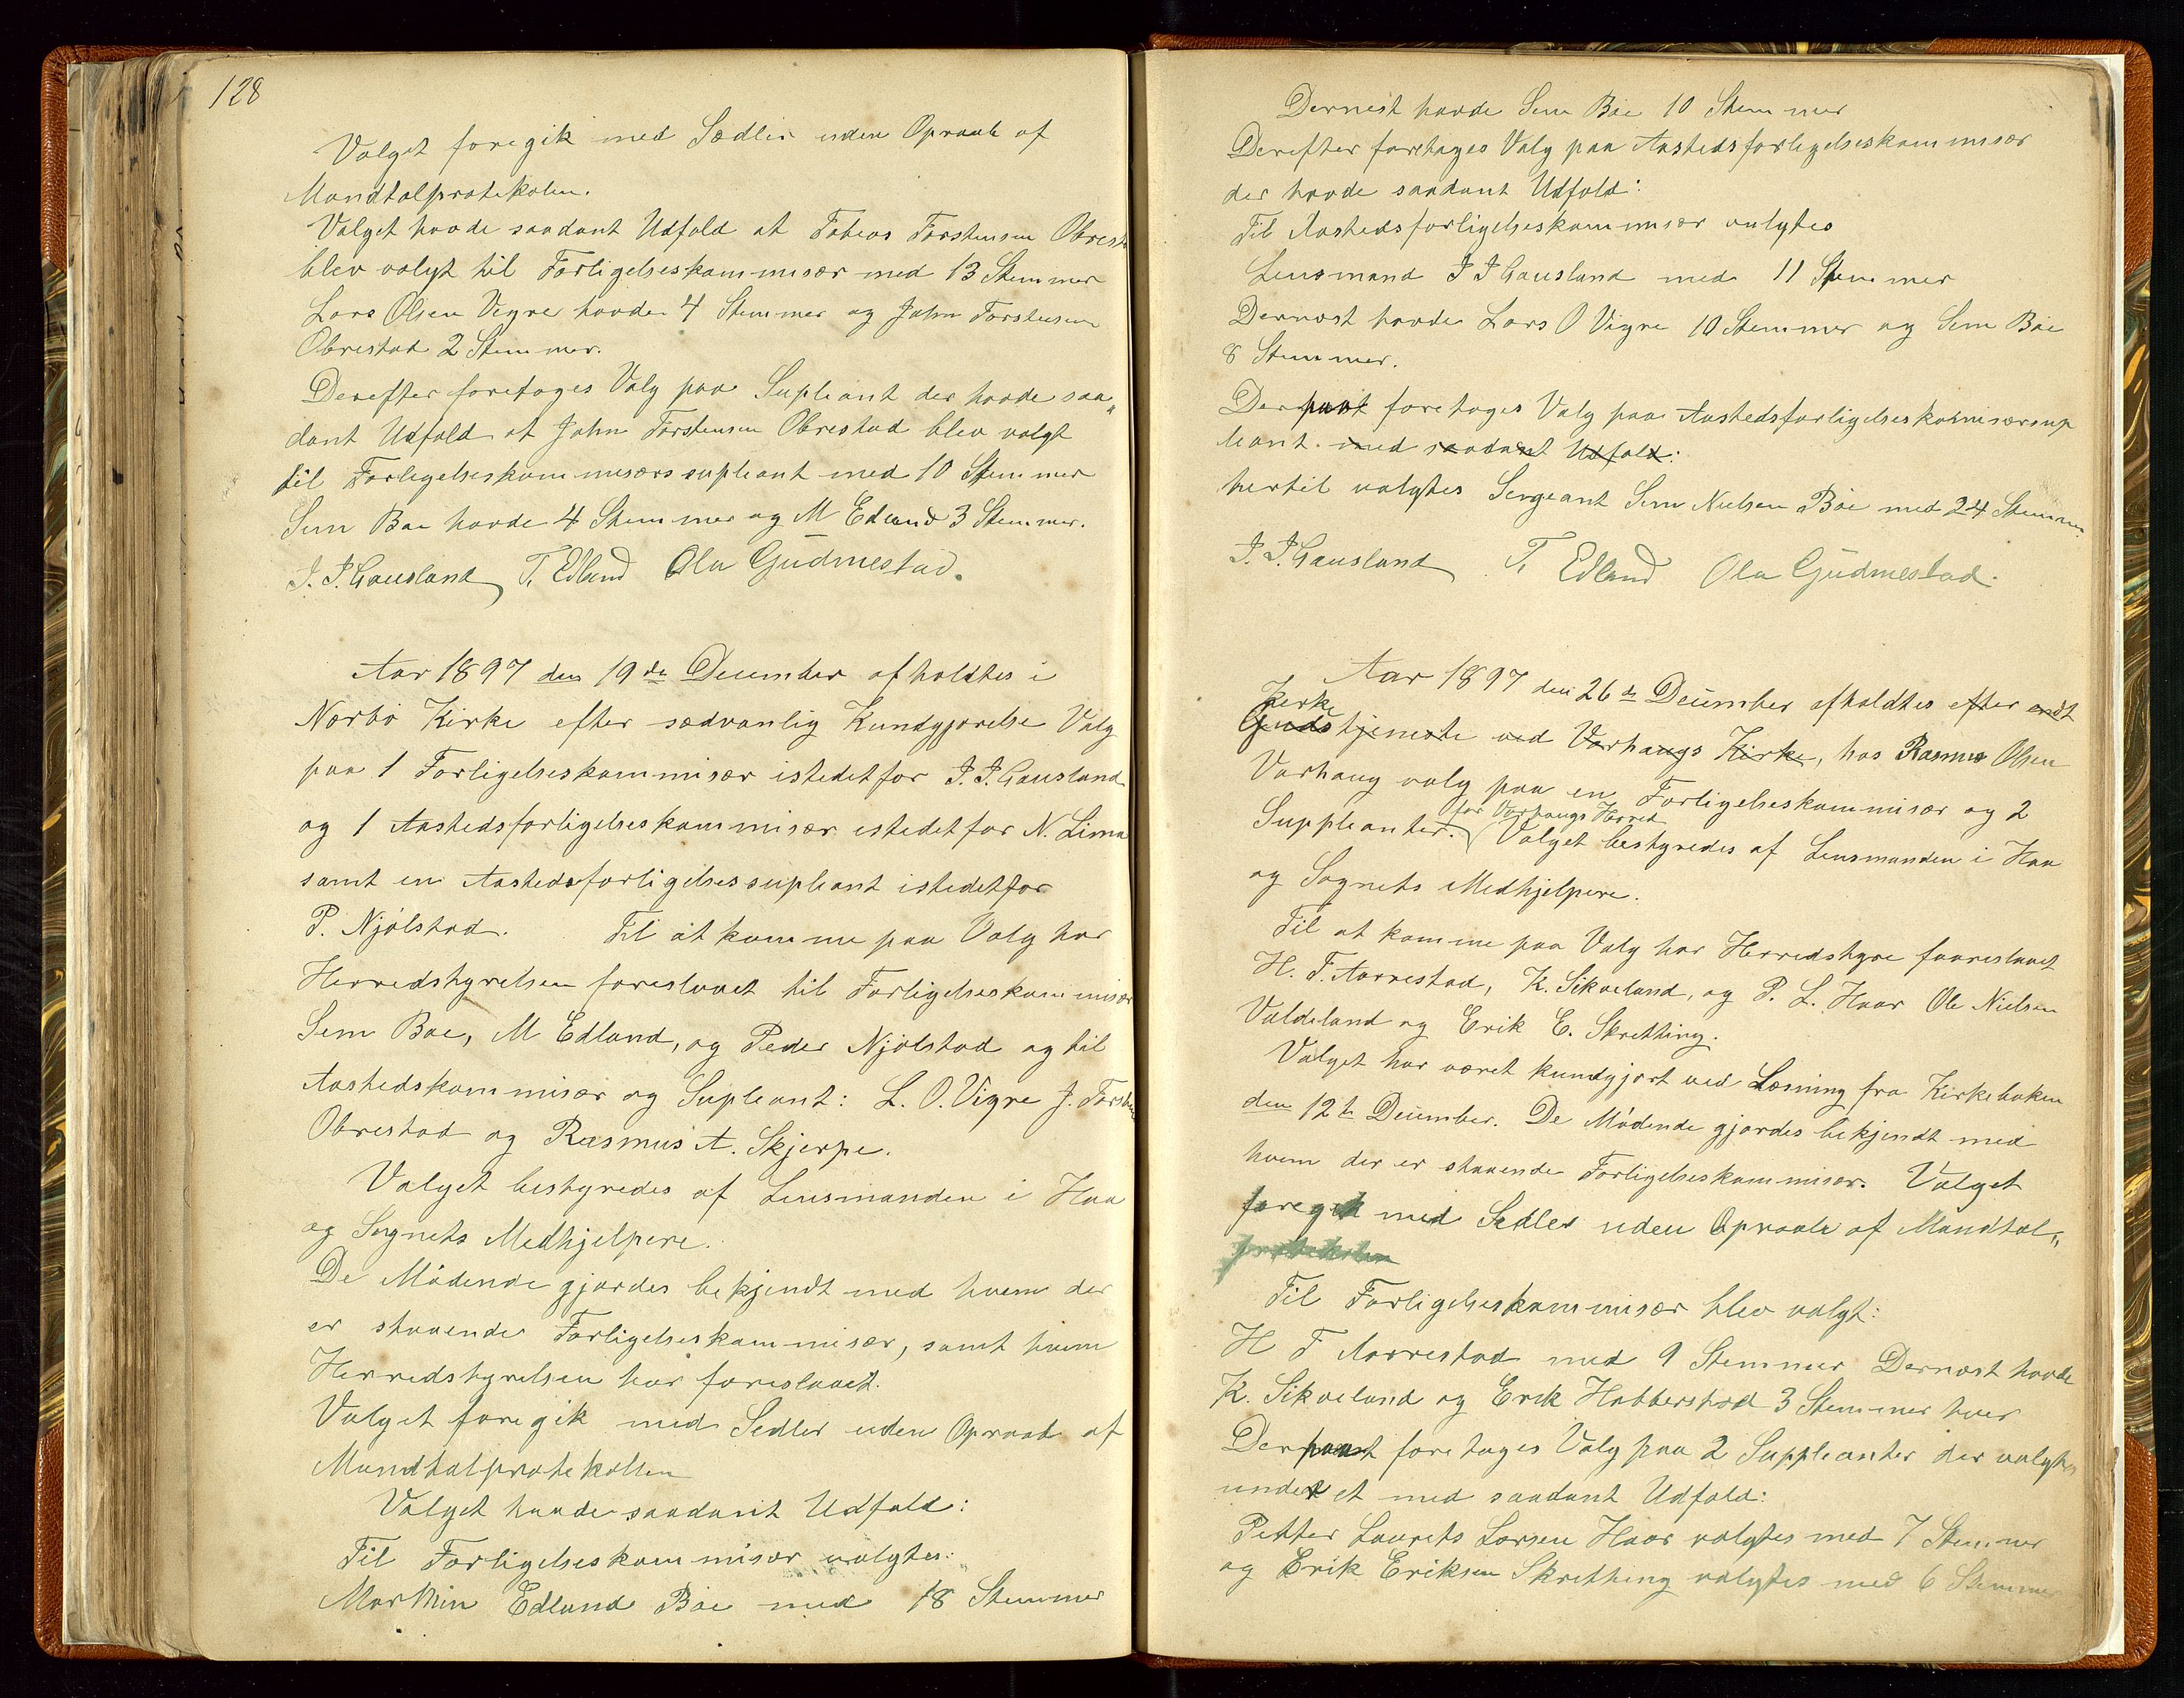 128
Valget foregik med Sedler uden Opraab af
Mandtalprotokolen.
Valget havde saadant Udfald at Tobias Torstensen Obrest
blev valgt til Forligelseskommisær med 13 Stemmer
Lars Olsen Vigre havde 4 Stemmer og John Torstensen
Obrestad 2 Stemmer.
Derefter foretages Valg paa Supleant der havde saa„
dant Udfald at John Torstensen Obrestad blev valgt
til Forligelseskommisærssupleant med 10 Stemmer
Sem Bøe havde 4 Stemmer og M Edland 3 Stemmer.
J. J. Gausland T. Edland Ola Gudmestad.
Aar 1897 den 19de December afholdtes i
Nærbø Kirke efter sædvanlig Kundgjørelse Valg
paa 1 Forligelseskommisær istedetfor J. J. Gausland
og 1 Aastedsforligelseskommisær istedetfor N. Lima
samt en Aastedsforligelsessupleant istedetfor
P. Njølstad. Til at komme paa Valg har
Herredstyrelsen foreslaaet til Forligelseskommisær
Sem Bøe, M Edland, og Peder Njølstad og til
Aastedskommisær og Supleant: L. O. Vigre J. Torsten
Obrestad og Rasmus A. Skjerpe.
Valget bestyredes af Lensmanden i Haa
og Sognets Medhjelpere.
De Mødende gjordes bekjendt med hvem der
er staaende Forligelseskommisær, samt hvem
Herredstyrelsen har foreslaaet.
Valget foregik med Sedler uden Opraab af
Mandtalprotokollen
Valget havde saadant Udfald:
Til Forligelseskommisær valgtes:
Markus Edland Bøe med 18 Stemmer
Dernest havde Sem Bøe 10 Stemmer
Derefter foretages Valg paa Aastedsforligelseskommisær
der havde saadant Udfald:
Til Aastedsforligelseskommisær valgtes
Lensmand J J Gausland med 11 Stemmer
Dernæst havde Lars O Vigre 10 Stemmer og Sem Bøe
8 Stemmer.
Derpaa foretages Valg paa Aastedsforligelseskomisærsup
leant. med saadant Udfald:
hertil valgtes Sergeant Sem Nielsen Bøe med 24 Stemmer.
J. J. Gausland T. Edland Ola Gudmestad.
Aar 1897 den 26de December afholdtes efter endt
Kirke
Gudstjeneste ved Varhaugs Kirke, hos Rasmus Olsen
Varhaug valg paa en Forligelseskommisær og 2
for Varhaugs Herred
Suppleanter. Valget bestyredes af Lensmanden i Haa
og Sognets Medhjelpere.
Til at komme paa Valg har Herredstyre foreslaaet
H. T. Aarrestad, K. Sikveland, og P. L. Haar Ole Nielsen
Valdeland og Erik E. Skretting.
Valget har været kundgjort ved Læsning fra Kirkebaken
den 12te December. De Mødende gjordes bekjendt med
hvem der er staaende Forligelseskommisær. Valget
foregik med Sedler uden Opraab af Mandtal„
protokollen
Til Forligelseskommisær blev valgt:
H T Aarrestad med 9 Stemmer Dernæst havde
K. Sikveland og Erik Habberstad 3 Stemmer hver
Derpaa foretages Valg paa 2 Suppleanter der valgtes
under et med saadant Udfald:
Petter Laurits Larsen Haar valgtes med 7 Stemmer
og Erik Eriksen Skretting valgtes med 6 Stemmer